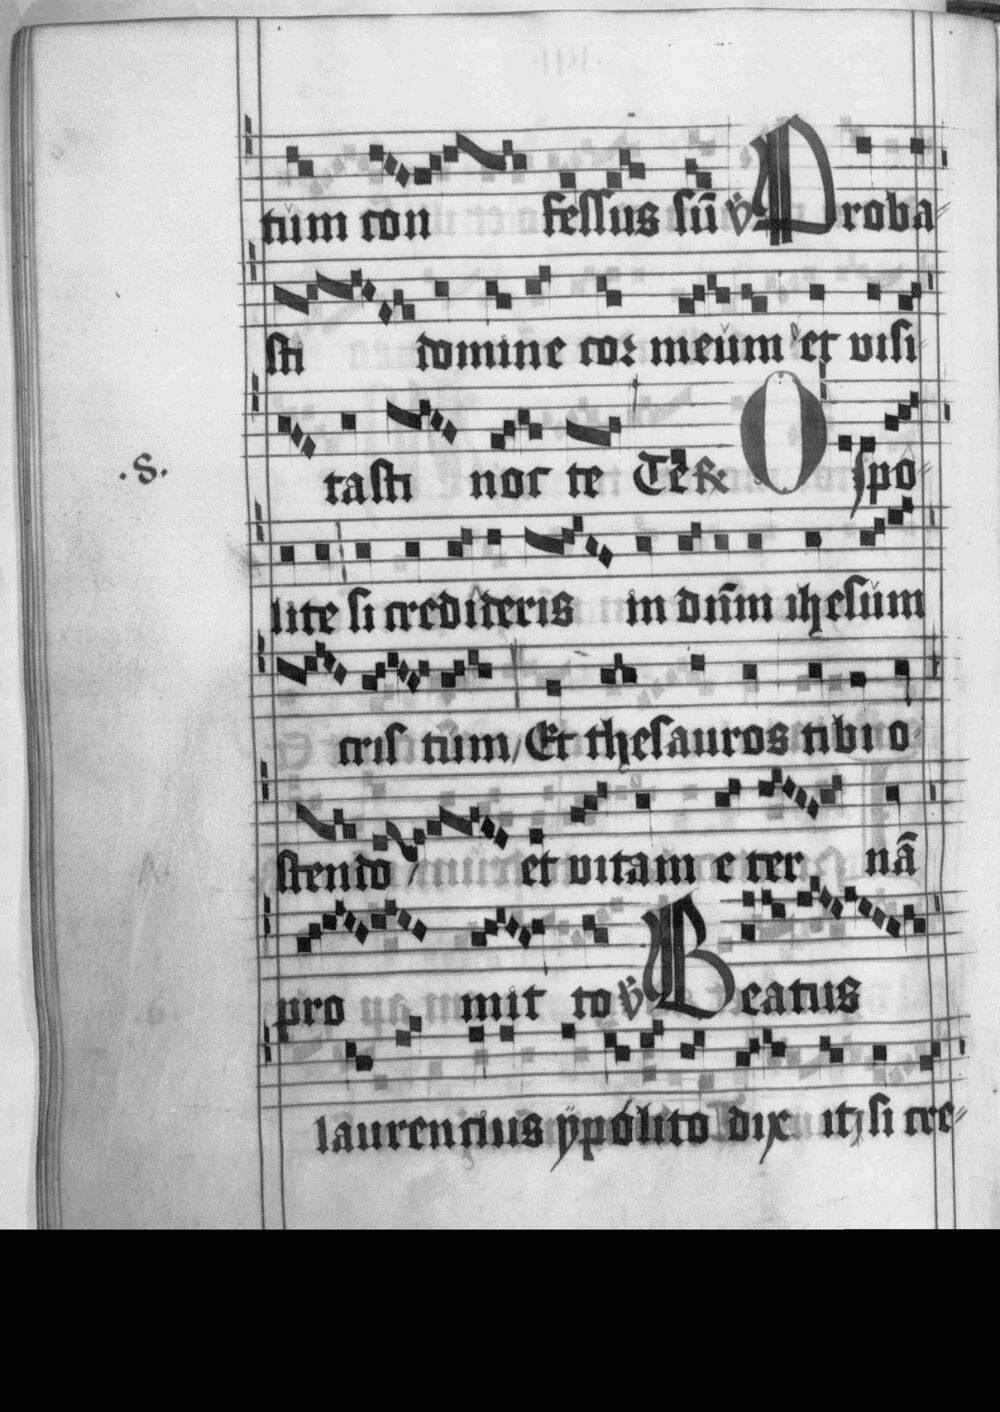 tum con fessus sū ℣ Proba
sti domine cor meum et visi
tasti noc te Te℟ O ypo
.S.
lite si credideris in dn̄m ihesum
cris tum Et thesauros tibi o
stendo et vitam e ter nā
pro mit to ℣ Beatus
laurencius ypolito dix it si cre